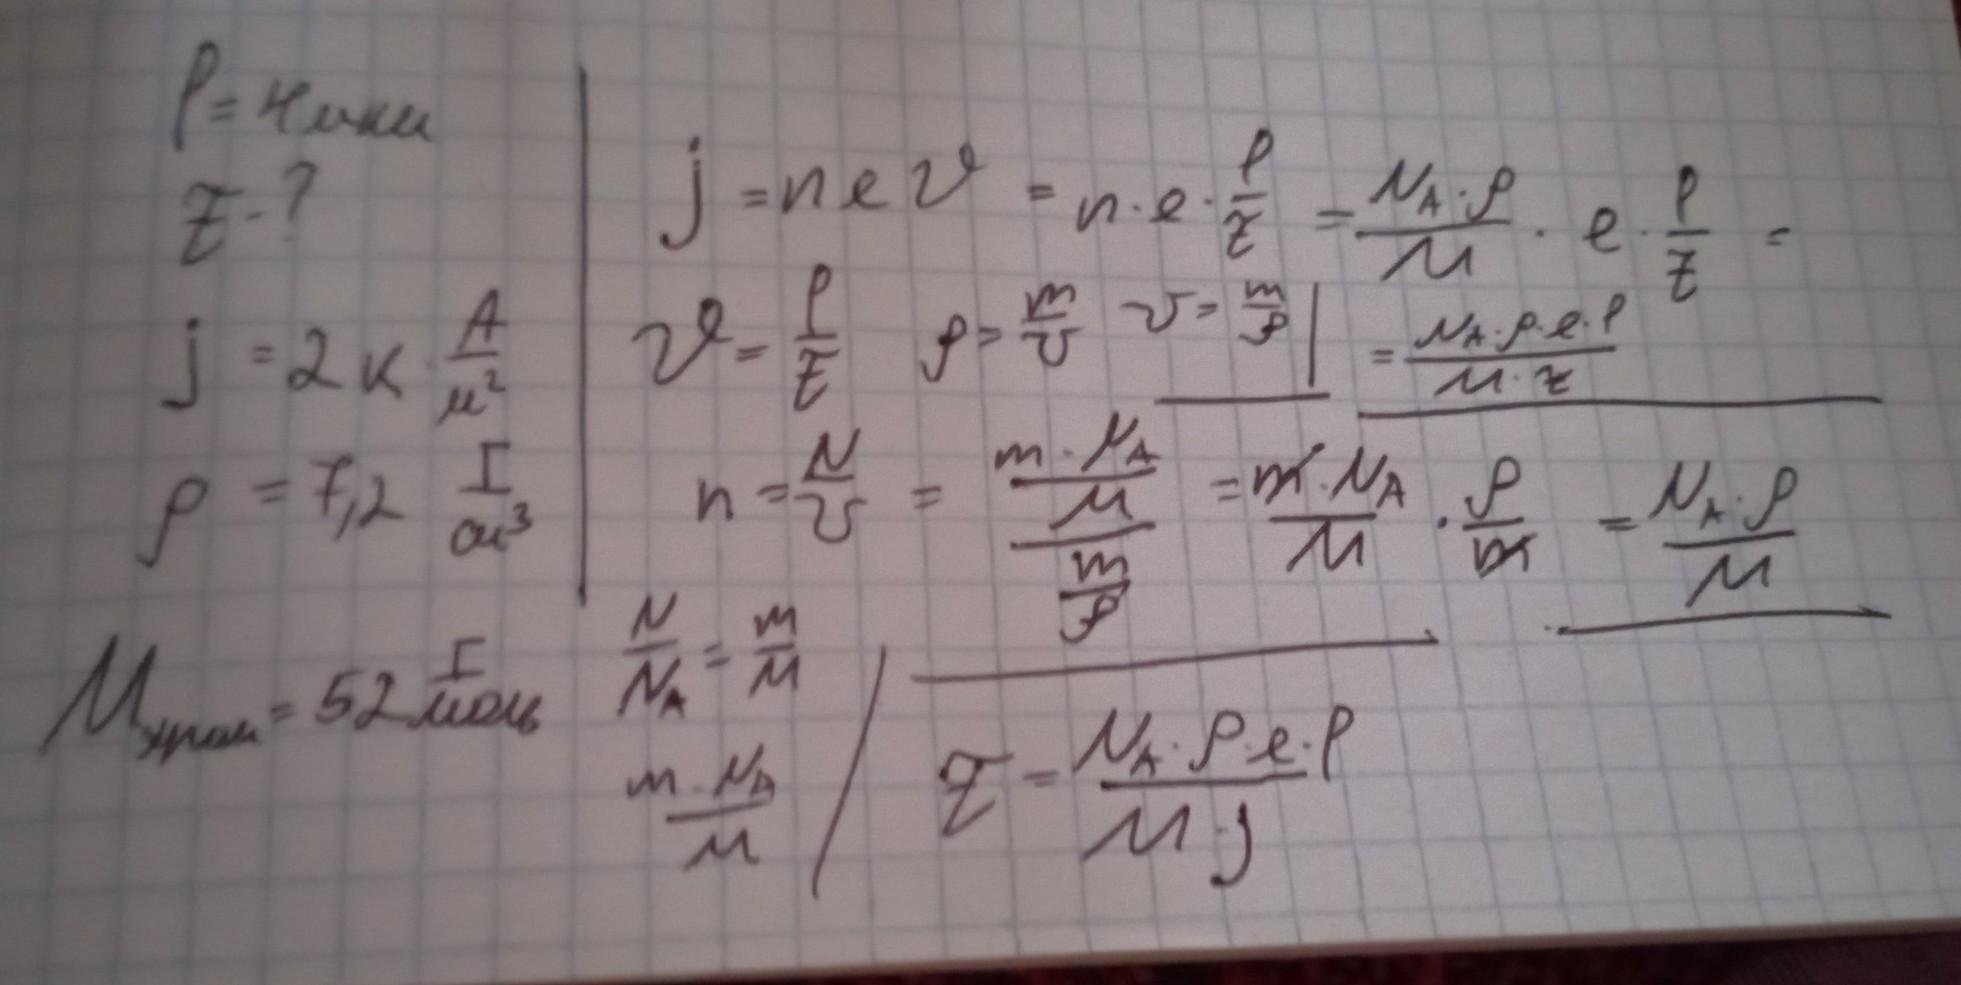 l = 4 мкм
τ - ?
j = 2 к · А/м²
ρ = 7,2 г/см³
M хром = 52 г/моль
j = n e v = n · e · l/τ = (N_A · ρ)/M · e · l/τ =
= (N_A · ρ · e · l)/(M · τ)
v = l/τ ρ = m/V V = m/ρ
n = N/V = ((m · N_A)/M)/(m/ρ) = (m · N_A)/M · ρ/m = (N_A · ρ)/M
N/N_A = m/M
(m · N_A)/M
τ = (N_A · ρ · e · l)/(M · j)